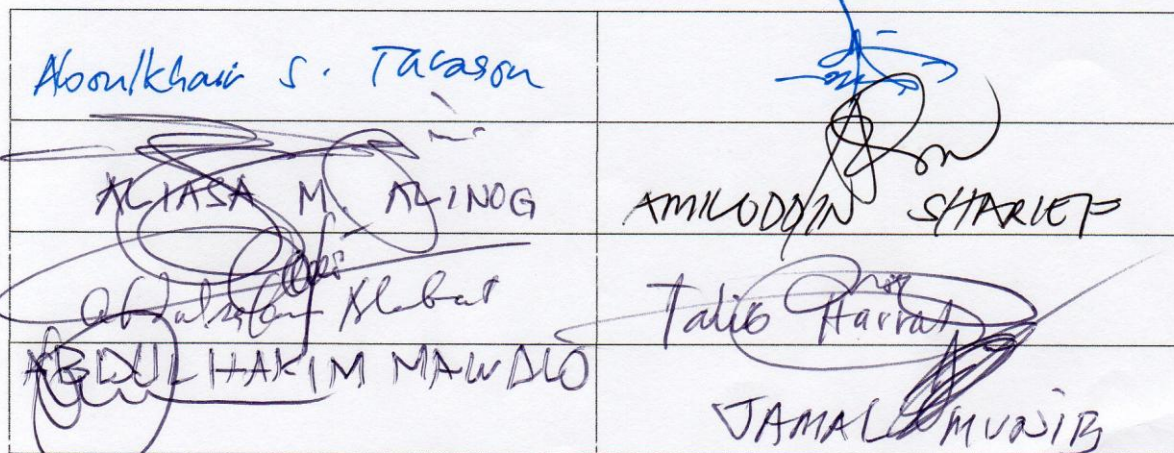 Aboulkhair S. Tarason
ALIASA M. ALINOG
AMILUDDIN SHARIEF
Abdulsalam Alabat
Talib Harras
ABDULHAKIM MAWDLO
JAMAL MUNIB